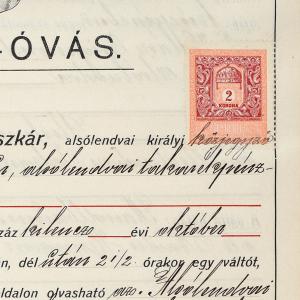 ÓVÁS.
2
KORONA
szkár, alsólendvai királyi közjegyző
r, alsólendvai takarékpénz-
száz kilencz évi október
n, dél után 2 1/2 órakor egy váltót,
oldalon olvasható az. Alsólendvai